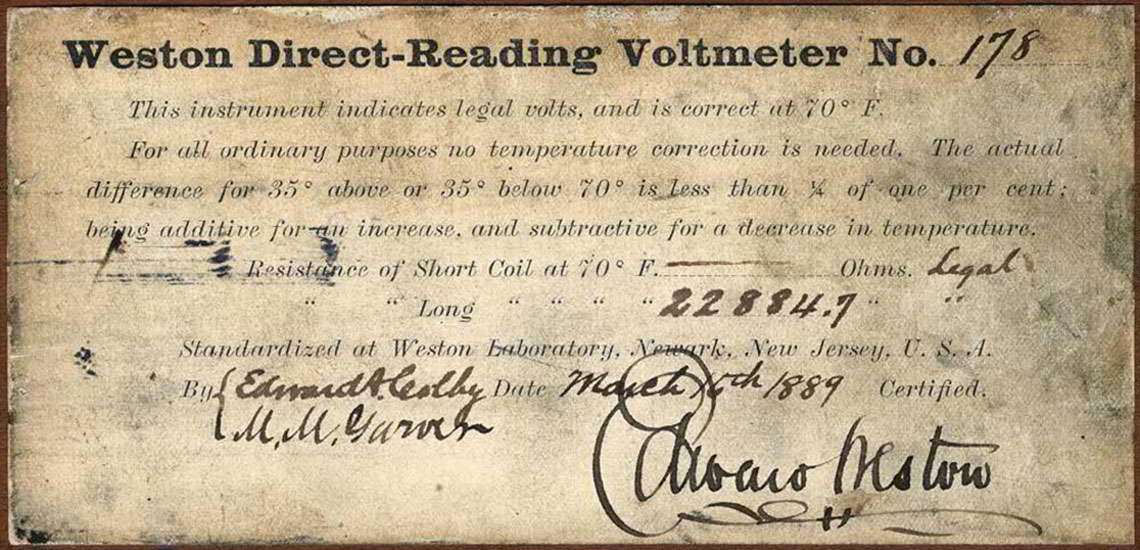 Weston Direct-Reading Voltmeter No. 178
This instrument indicates legal volts, and is correct at 70° F.
For all ordinary purposes no temperature correction is needed. The actual
difference for 35° above or 35° below 70° is less than ¼ of one per cent;
being additive for an increase, and subtractive for a decrease in temperature.
Resistance of Short Coil at 70° F. — Ohms. Legal
" " Long " " " " 22884.7 " "
Standardized at Weston Laboratory, Newark, New Jersey, U. S. A.
By Edward A. Colby Date March 6th 1889 Certified.
M. M. Garver
Edward Weston